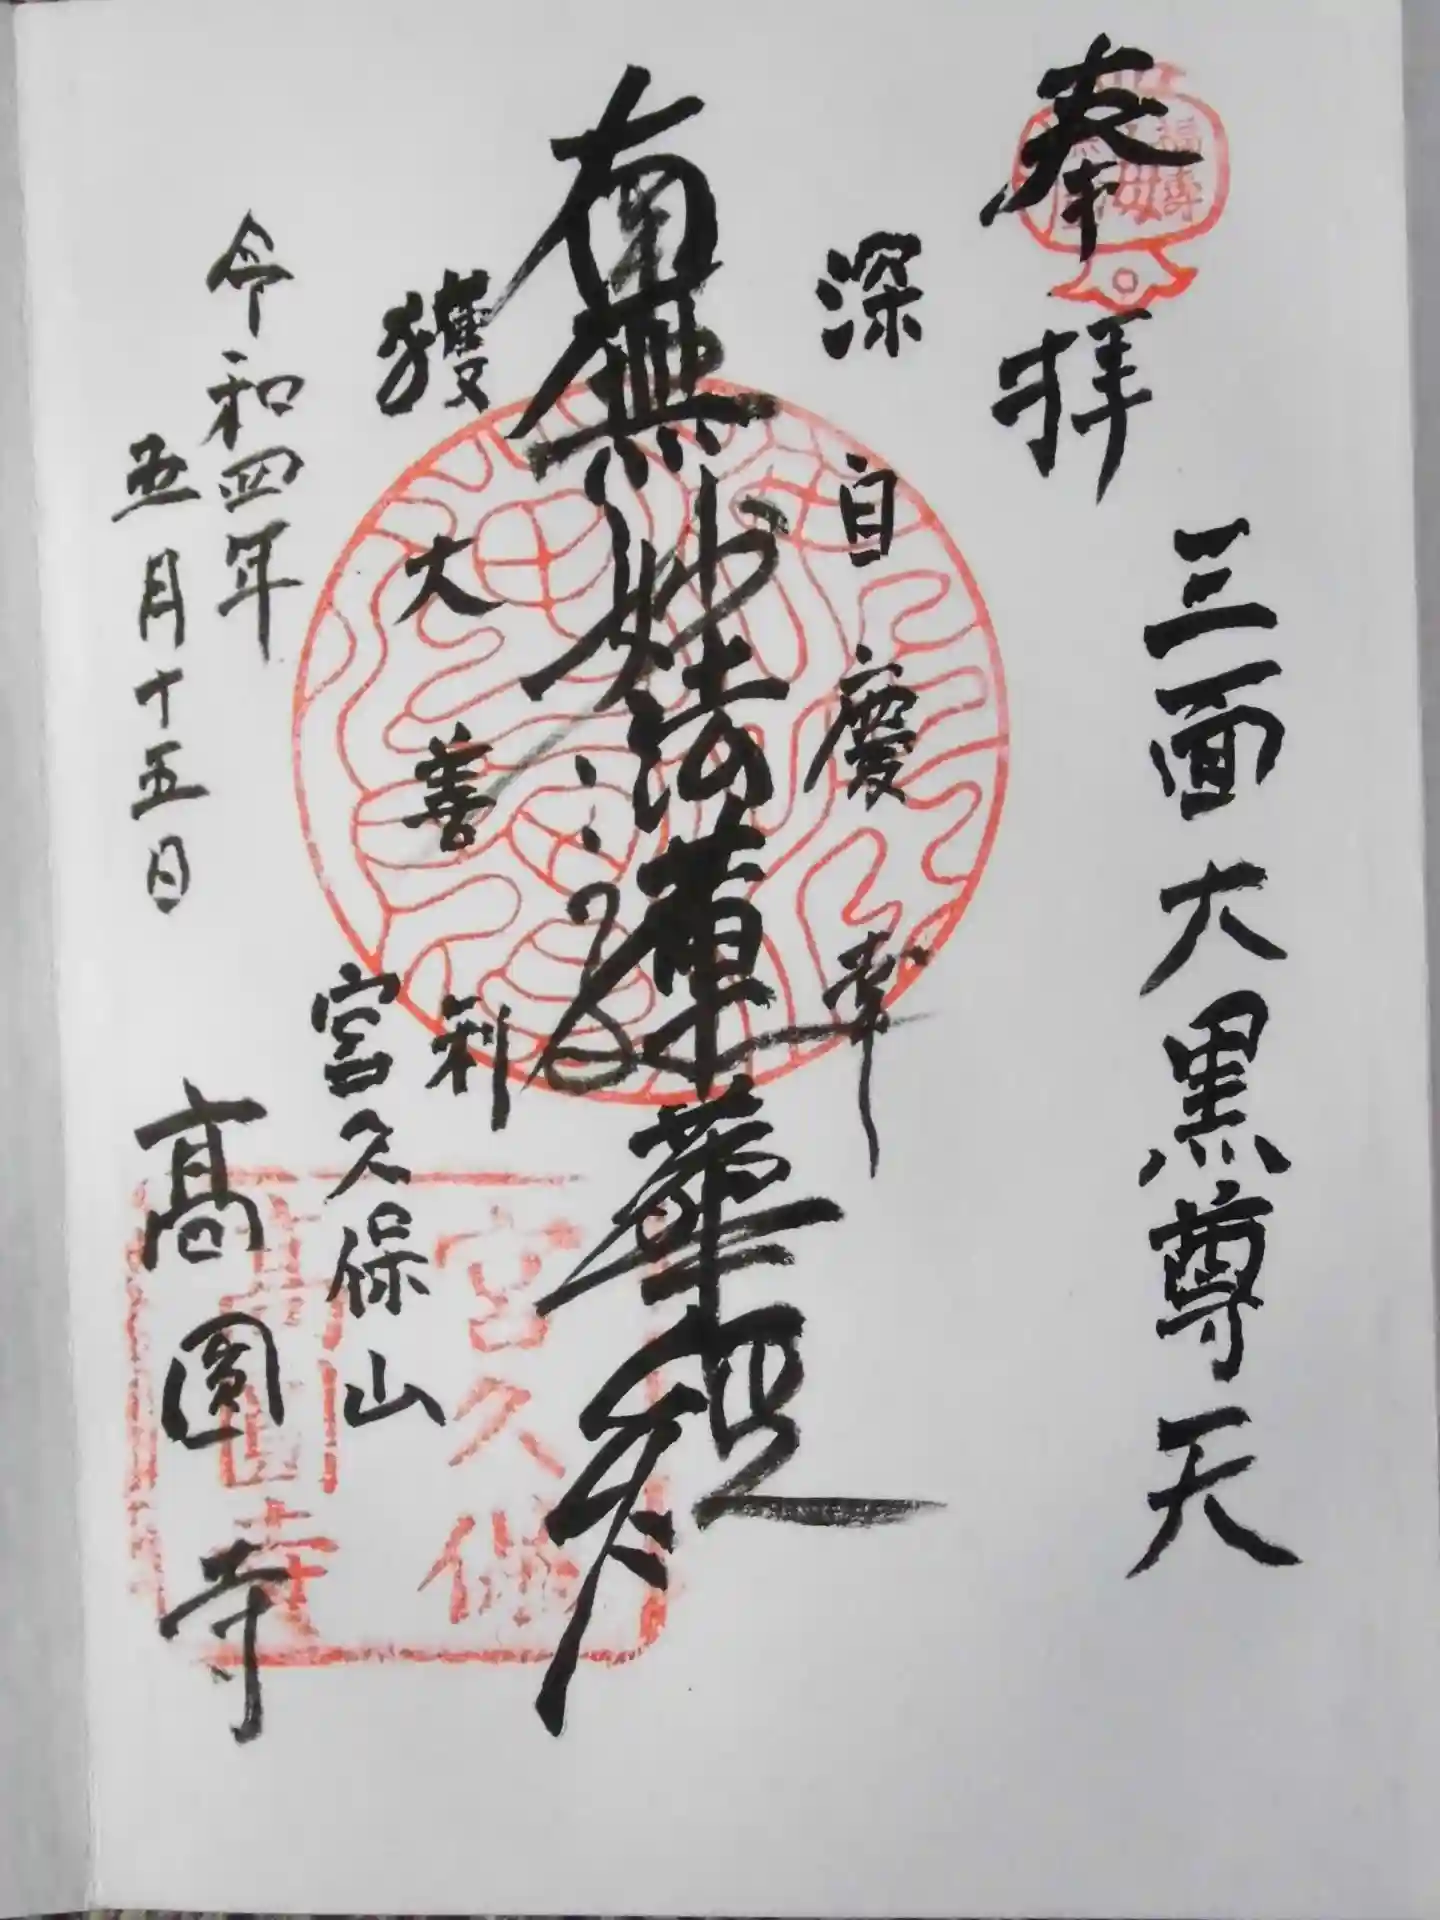 奉拝
三面大黒尊天
深自慶幸
南無妙法蓮華経
獲大善利
宮久保山
令和四年
五月十五日
高圓寺
宮久保
高圓寺